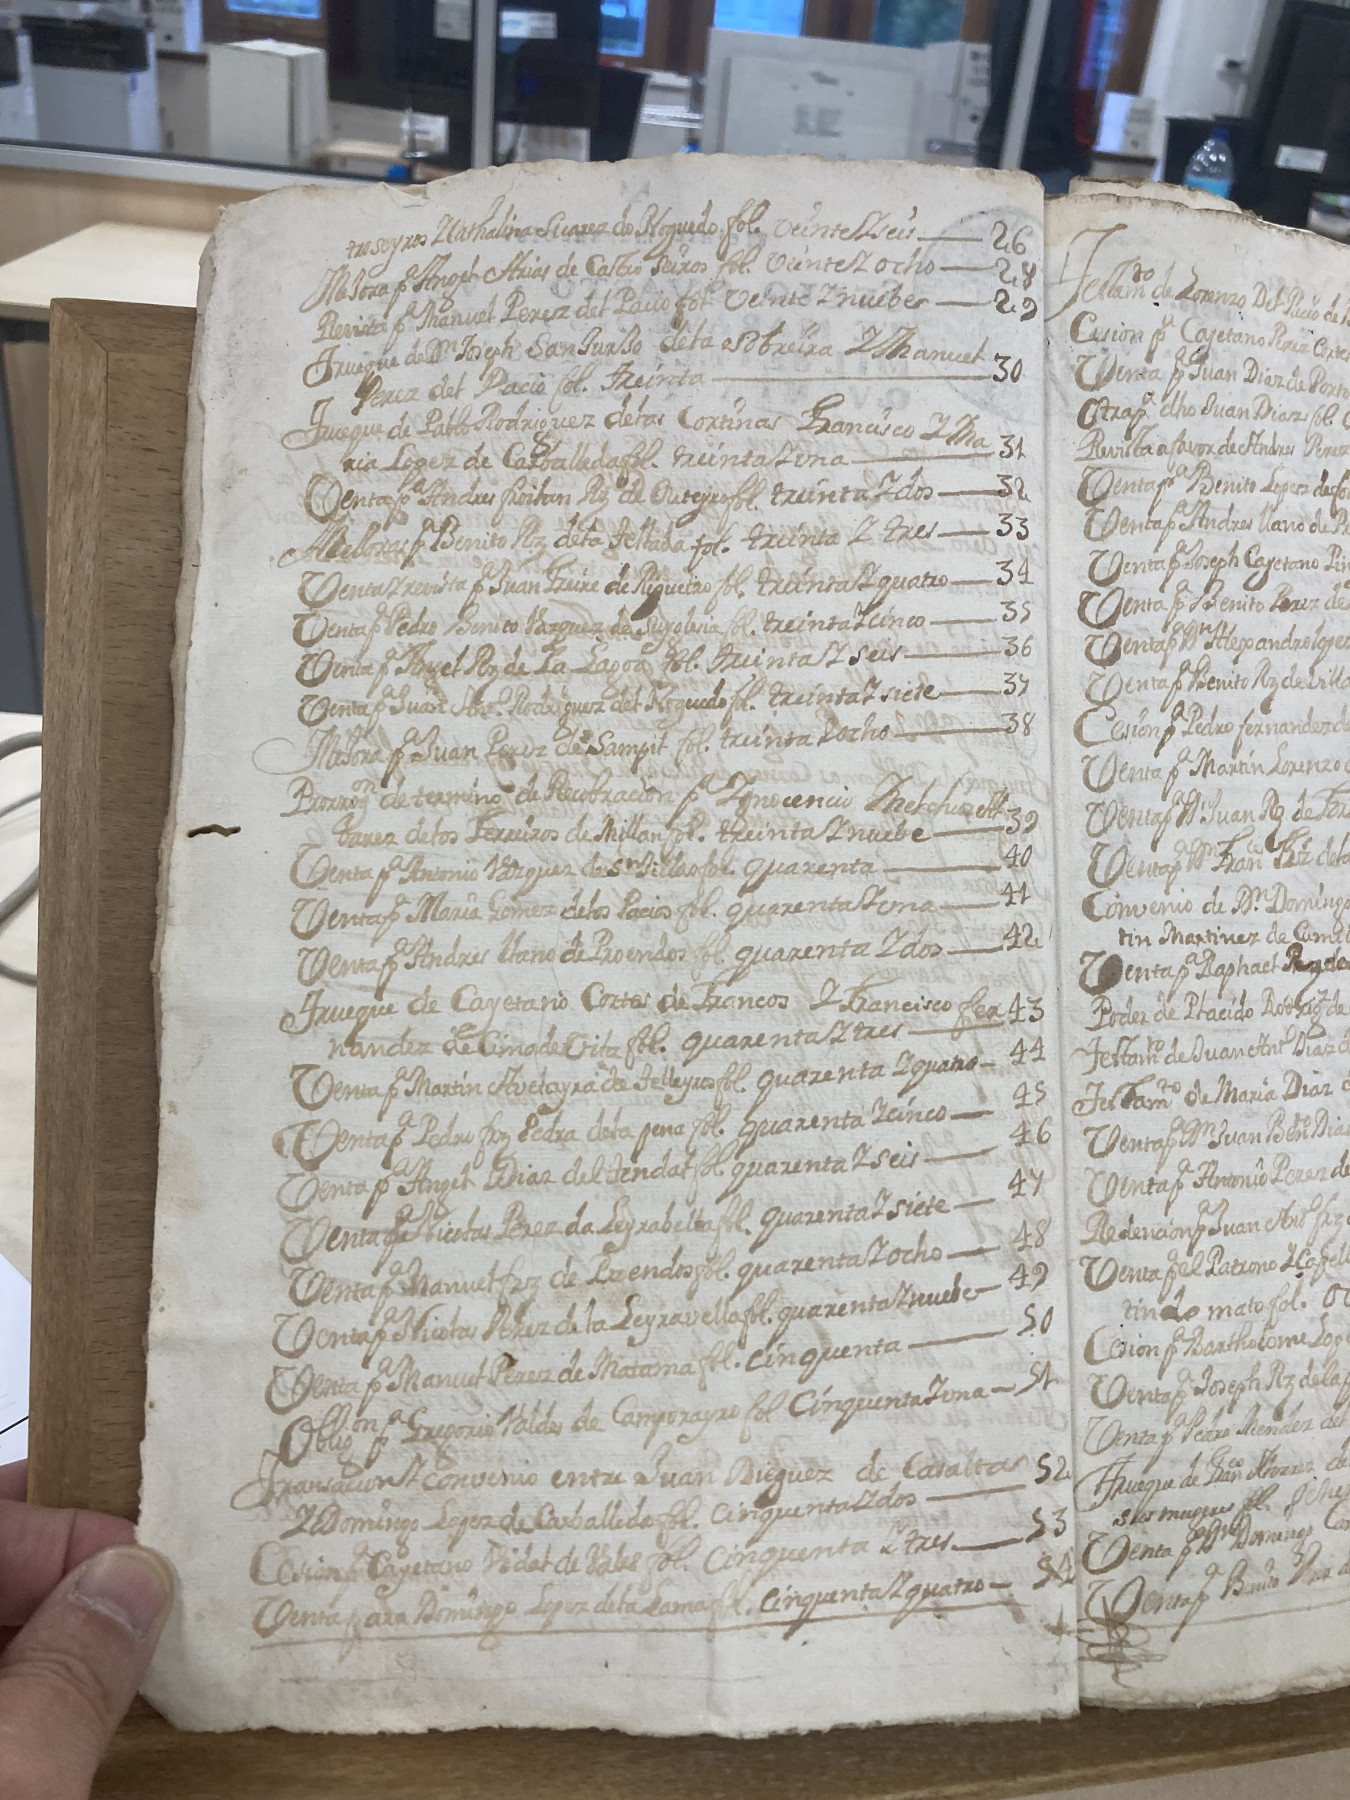 troseyros Y Cathalina Suarez do Noguedo fol. veinte Y seis — 26
Mejora pª Angel Arias de Castro seiros fol. veinte Y ocho — 28
Revista pª Manuel Perez del Pacio fol. veinte Y nuebe — 29
Trueque de Dn Joseph SanJurJo de la esobreira Y Manuel
Perez del Pacio fol. treinta — 30
Trueque de Pablo Rodriguez de las Cortinas Francisco Y Ma
ria Lopez de Carballeda fol. treinta Y una — 31
Venta pª Andres Roilan Rz de Outeyro fol. treinta Y dos — 32
Mellora pª Benito Rz de la Tellada fol. treinta Y tres — 33
Venta Y revista pª Juan Freire de Rigueiro fol. treinta Y quatro — 34
Venta pª Pedro Benito Vazquez de fol. treinta Y cinco — 35
Venta pª Angel Rz de La Lagoa fol. treinta Y seis — 36
Venta pª Juan Anto. Rodriguez del Noguedo fol. treinta Y siete — 37
Mejora pª Juan Perez de Sampil fol. treinta Y ocho — 38
Prorrogon de termino de Recobracion pª Ygnocencio Melchor Al
barez de los Ferreiros de Millan fol. treinta Y nuebe — 39
Venta pª Antonio Vazquez de Sn Jillao fol. quarenta — 40
Venta pª Maria Gomez de los Pacios fol. quarenta Y una — 41
Venta pª Andres Llano de Proendos fol. quarenta Y dos — 42
Trueque de Cayetano Cortes de Francos Y Francisco fer
nandez de Cima de Vila fol. quarenta Y tres — 43
Venta pª Martin Avelayra de Telleyros fol. quarenta Y quatro — 44
Venta pª Pedro frz Cedra de la pena fol. quarenta Y cinco — 45
Venta pª Angel Diaz del Tendal fol. quarenta Y seis — 46
Venta pª Nicolas Perez da Leyrabella fol. quarenta Y siete — 47
Venta pª Manuel frz de Proendos fol. quarenta Y ocho — 48
Venta pª Nicolas Perez de la Leyravella fol. quarenta Y nuebe — 49
Venta pª Manuel Perez de Matama fol. cinquenta — 50
Obligon pª Gregorio Valdes de Camporayro fol cinquenta Y una — 51
Transacion Y convenio entre Juan Dieguez de Casaltas
Y Domingo Lopez de Carballeda fol. cinquenta Y dos — 52
Cesion pª Cayetano Vidal de Vales fol. cinquenta Y tres — 53
Venta para Domingo Lopez de la Lama fol. cinquenta Y quatro — 54
Testamto de Lorenzo Del Pacio de
Cesion pª Cayetano Perez Cortes
Venta pª Juan Diaz de Porto
Otra pª dho Juan Diaz fol.
Revista a favor de Andres Perez
Venta pª Benito Lopez de
Venta pª Andres llano de
Venta pª Joseph Cayetano
Venta pª Benito Perez de
Venta pª Dn Alexandro lopez
Venta pª Benito Rz de Villa
Cesion pª Pedro fernandez de
Venta pª Martin Lorenzo
Venta pª Dn Juan Rz de
Venta pª Dn Franco de la
Convenio de Dn Domingo
tin Martinez de
Venta pª Raphael
Poder de Placido Rodrigz de
Testamto de Juan Ant Diaz
Testamto de Maria Diaz
Venta pª Dn Juan Bento Diaz
Venta pª Antonio Perez de
Redencion pª Juan Anto frz
Venta pª el Patrono Y Capell
tin do mato fol.
Cesion pª Bartholome Lope
Venta pª Joseph Rz de la
Venta pª Pedro Mendez del
Trueque de Franco de
sus mugeres fol.
Venta pª Dn Domingo
Venta pª Benito